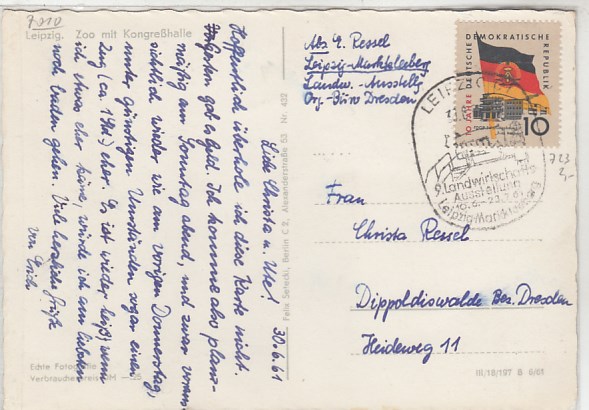 7010
Leipzig. Zoo mit Kongreßhalle
30.6.61
Liebe Christa u. Ute!
Hoffentlich überhole ich diese Karte nicht.
Gestern gab's Geld. Ich komme also planmäßig
am Sonntag abend, und zwar voraussichtlich
wieder wie am vorigen Donnerstag,
unter günstigen Umständen sogar einen
Zug (ca. 19 Uhr) eher. Es ist wieder heiß; wenn
ich etwas eher käme, würde ich am liebsten
noch baden gehen. Viele herzliche Grüße
von Erich
Echte Fotografie
Verbraucherpreis DM -,25
Felix Setecki, Berlin C 2, Alexanderstraße 53 Nr. 422
Abs. E. Ressel
Leipzig-Markkleeberg
Landw.-Ausstellg
Org-Büro Dresden
10 JAHRE DEUTSCHE DEMOKRATISCHE REPUBLIK
10
LEIPZIG
9. Landwirtschafts
Ausstellung
Leipzig-Markkleeberg
723
2,-
Frau
Christa Ressel
Dippoldiswalde Bez. Dresden
Heideweg 11
III/18/197 B 6/61